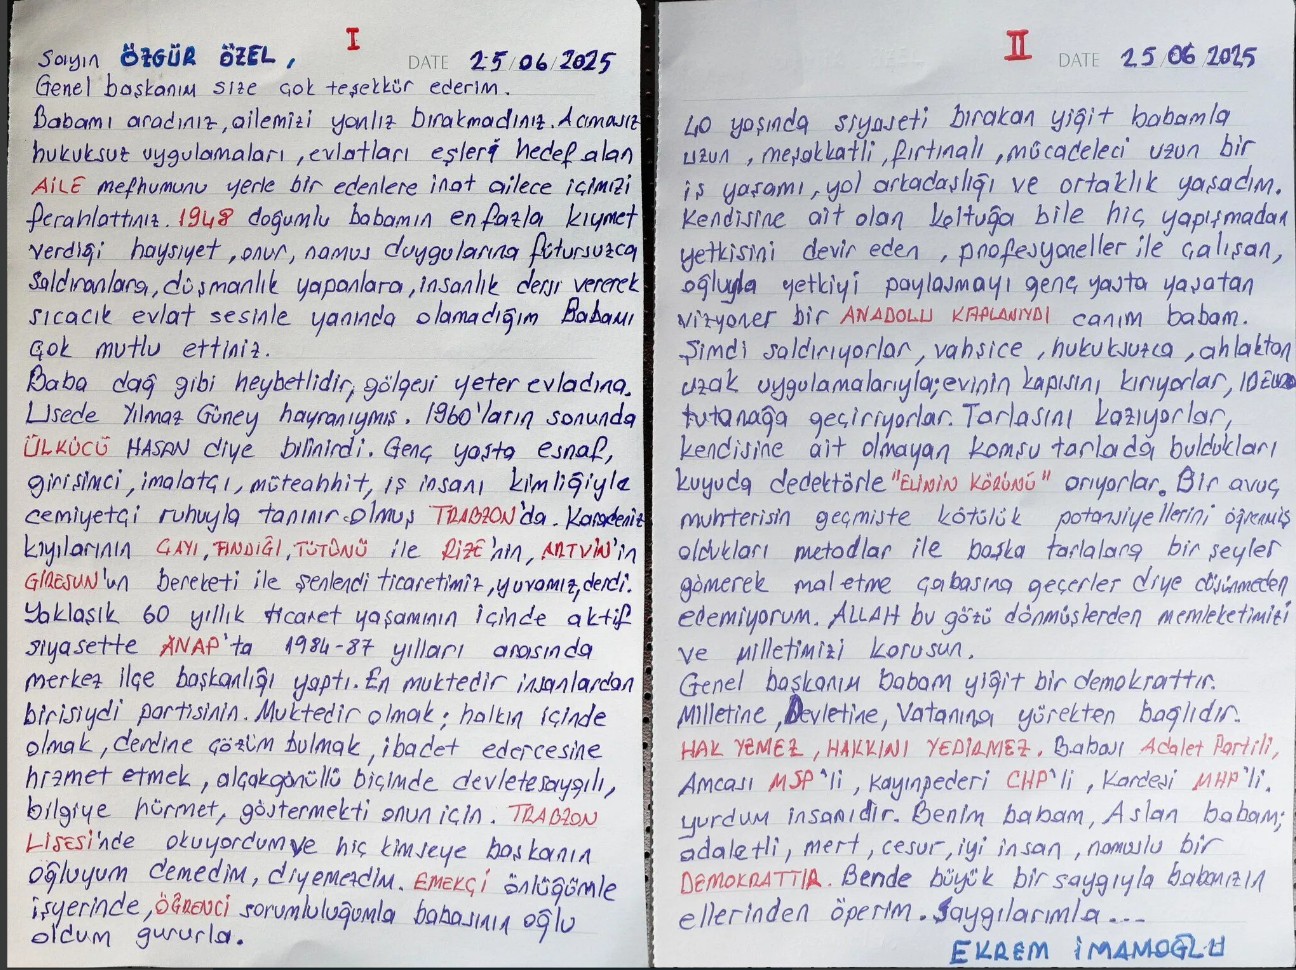 I
Sayın ÖZGÜR ÖZEL, DATE 25/06/2025
Genel başkanım size çok teşekkür ederim.
Babamı aradınız, ailemizi yanlız bırakmadınız. Acımasız
hukuksuz uygulamaları, evlatları eşleri hedef alan
AİLE mefhumunu yerle bir edenlere inat ailece içimizi
ferahlattınız. 1948 doğumlu babamın en fazla kıymet
verdiği haysiyet, onur, namus duygularına fütursuzca
saldıranlara, düşmanlık yapanlara, insanlık dersi vererek
sıcacık evlat sesinle yanında olamadığım Babamı
çok mutlu ettiniz.
Baba dağ gibi heybetlidir, gölgesi yeter evladına.
Lisede Yılmaz Güney hayranıymış. 1960'ların sonunda
ÜLKÜCÜ HASAN diye bilinirdi. Genç yaşta esnaf,
girişimci, imalatçı, müteahhit, iş insanı kimliğiyle
cemiyetçi ruhuyla tanınır olmuş TRABZON'da. Karadeniz
kıyılarının ÇAYI, FINDIĞI, TÜTÜNÜ ile RİZE'nin, ARTVİN'in
GİRESUN'un bereketi ile şenlendi ticaretimiz, yuvamız, derdi.
Yaklaşık 60 yıllık ticaret yaşamının içinde aktif
siyasette ANAP'ta 1984-87 yılları arasında
merkez ilçe başkanlığı yaptı. En muktedir insanlardan
birisiydi partisinin. Muktedir olmak; halkın içinde
olmak, derdine çözüm bulmak, ibadet edercesine
hizmet etmek, alçakgönüllü biçimde devlete saygılı,
bilgiye hürmet, göstermekti onun için. TRABZON
LİSESİ'nde okuyordum ve hiç kimseye başkanın
oğluyum demedim, diyemezdim. EMEKÇİ önlüğümle
işyerinde, ÖĞRENCİ sorumluluğumla babasının oğlu
oldum gururla.
II
DATE 25/06/2025
40 yaşında siyaseti bırakan yiğit babamla
uzun, meşakkatli, fırtınalı, mücadeleci uzun bir
iş yaşamı, yol arkadaşlığı ve ortaklık yaşadım.
Kendisine ait olan koltuğa bile hiç yapışmadan
yetkisini devir eden, profesyoneller ile çalışan,
oğluyla yetkiyi paylaşmayı genç yaşta yaşatan
vizyoner bir ANADOLU KAPLANIYDI canım babam.
Şimdi saldırıyorlar, vahşice, hukuksuzca, ahlaktan
uzak uygulamalarıyla; evinin kapısını kırıyorlar, 10 EURO
tutanağa geçiriyorlar. Tarlasını kazıyorlar,
kendisine ait olmayan komşu tarlada buldukları
kuyuda dedektörle "ELİNİN KÖRÜNÜ" arıyorlar. Bir avuç
muhterisin geçmişte kötülük potansiyellerini öğrenmiş
oldukları metodlar ile başka tarlalara bir şeyler
gömerek mal etme çabasına geçerler diye düşünmeden
edemiyorum. ALLAH bu gözü dönmüşlerden memleketimizi
ve milletimizi korusun.
Genel başkanım babam yiğit bir demokrattır.
Milletine, Devletine, Vatanına yürekten bağlıdır.
HAK YEMEZ, HAKKINI YEDİRMEZ. Babası Adalet Partili,
Amcası MSP'li, Kayınpederi CHP'li, Kardeşi MHP'li.
yurdum insanıdır. Benim babam, Aslan babam;
adaletli, mert, cesur, iyi insan, namuslu bir
DEMOKRATTIR. Bende büyük bir saygıyla babamızın
ellerinden öperim. Saygılarımla...
EKREM İMAMOĞLU